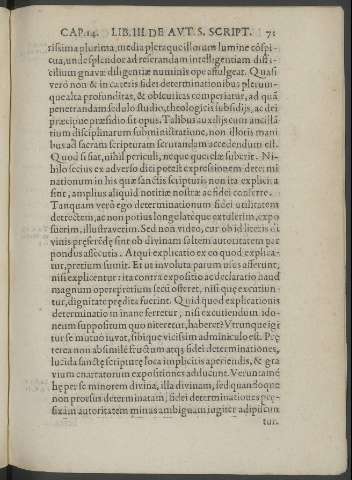 CAP. 14. LIB. III. DE AVT. S. SCRIPT. 71
rissima plurima, media pleraque illorum lumine cóspi-
cua, unde splendor ad reserandam intelligentiam diffi-
cilium gnavæ diligentiæ numinis ope affulgeat. Quasi
verò non & in cæteris fidei determinationibus plerum-
que alta profunditas, & obscuritas comperiatur, ad quá
penetrandam sedulo studio, theologicis subsidijs, ac dei
præcipue præsidio sit opus. Talibus auxilijs cum ancilla
tium disciplinarum subministratione, non illotis mani
bus ad sacram scripturam scrutandam accedendum est.
Quod si fiat, nihil periculi, neque querelæ suberit. Ni-
hilo secius ex adverso dici potest expressionem determi
nationum in his quæ sanctis scripturis non ita explicita
sint, amplius aliquid notitiæ nostræ ac fidei conferre.
Tanquam verò ego determinationum fidei utilitatem
detrectem, ac non potius longe lateque extulerim, expo
suerim, illustraverim. Sed non video, cur ob id literis di
vinis præferédę sint ob divinam saltem autoritatem par
pondus assecutis. Atqui explicatio ex eo quod explica-
tur, pretium sumit. Et ut involuta parum usés afferunt,
nisi explicentur: ita contra expositio ac declaratio haud
magnum operæpretium secú osteret, nisi quę excutiun-
tur, dignitate prędita fuerint. Quid quod explicationis
determinatio in inane ferretur, nisi excutiendum ido-
neum suppositum quo niteretur, haberet? Vtrunque igi
tur se mutuo iuvat, sibique vicissim adminiculo est. Pre
terea non absimilé fructum atq; fidei determinationes,
lucida sanctę scripturę loca implicitis aperiendis, & gra
vium enarratorum expositiones adducunt. Veruntamé
hę per se minorem divina, illa divinam, sed quandoque
non prorsus determinatam, fidei determinationes pręs-
sizam autoritatem minas ambiguam iugiter adipiscun
tur.